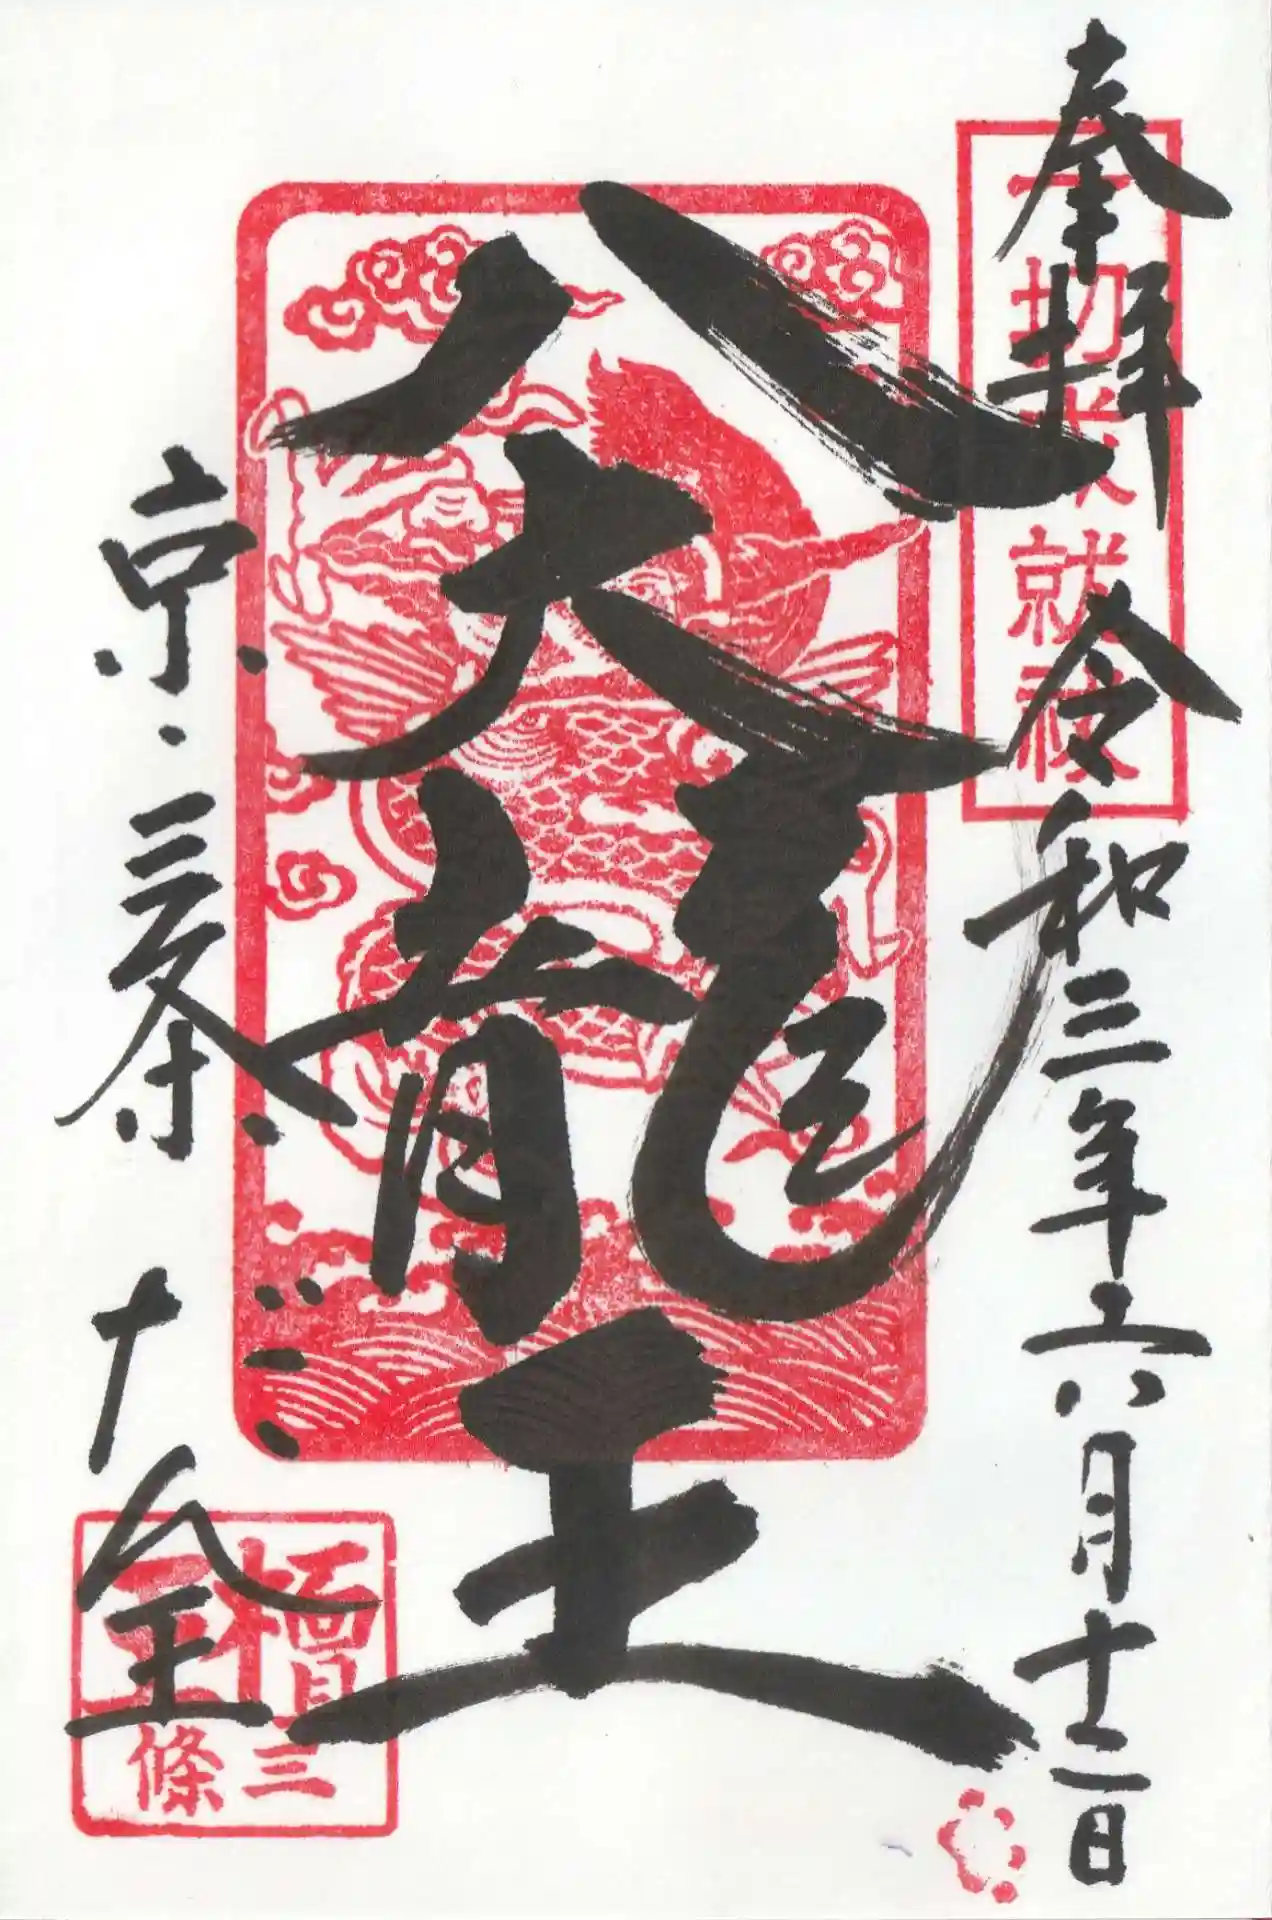 奉拝
令和三年六月十二日
八大龍王
京・三条 だん王
一切成就
檀王
三條